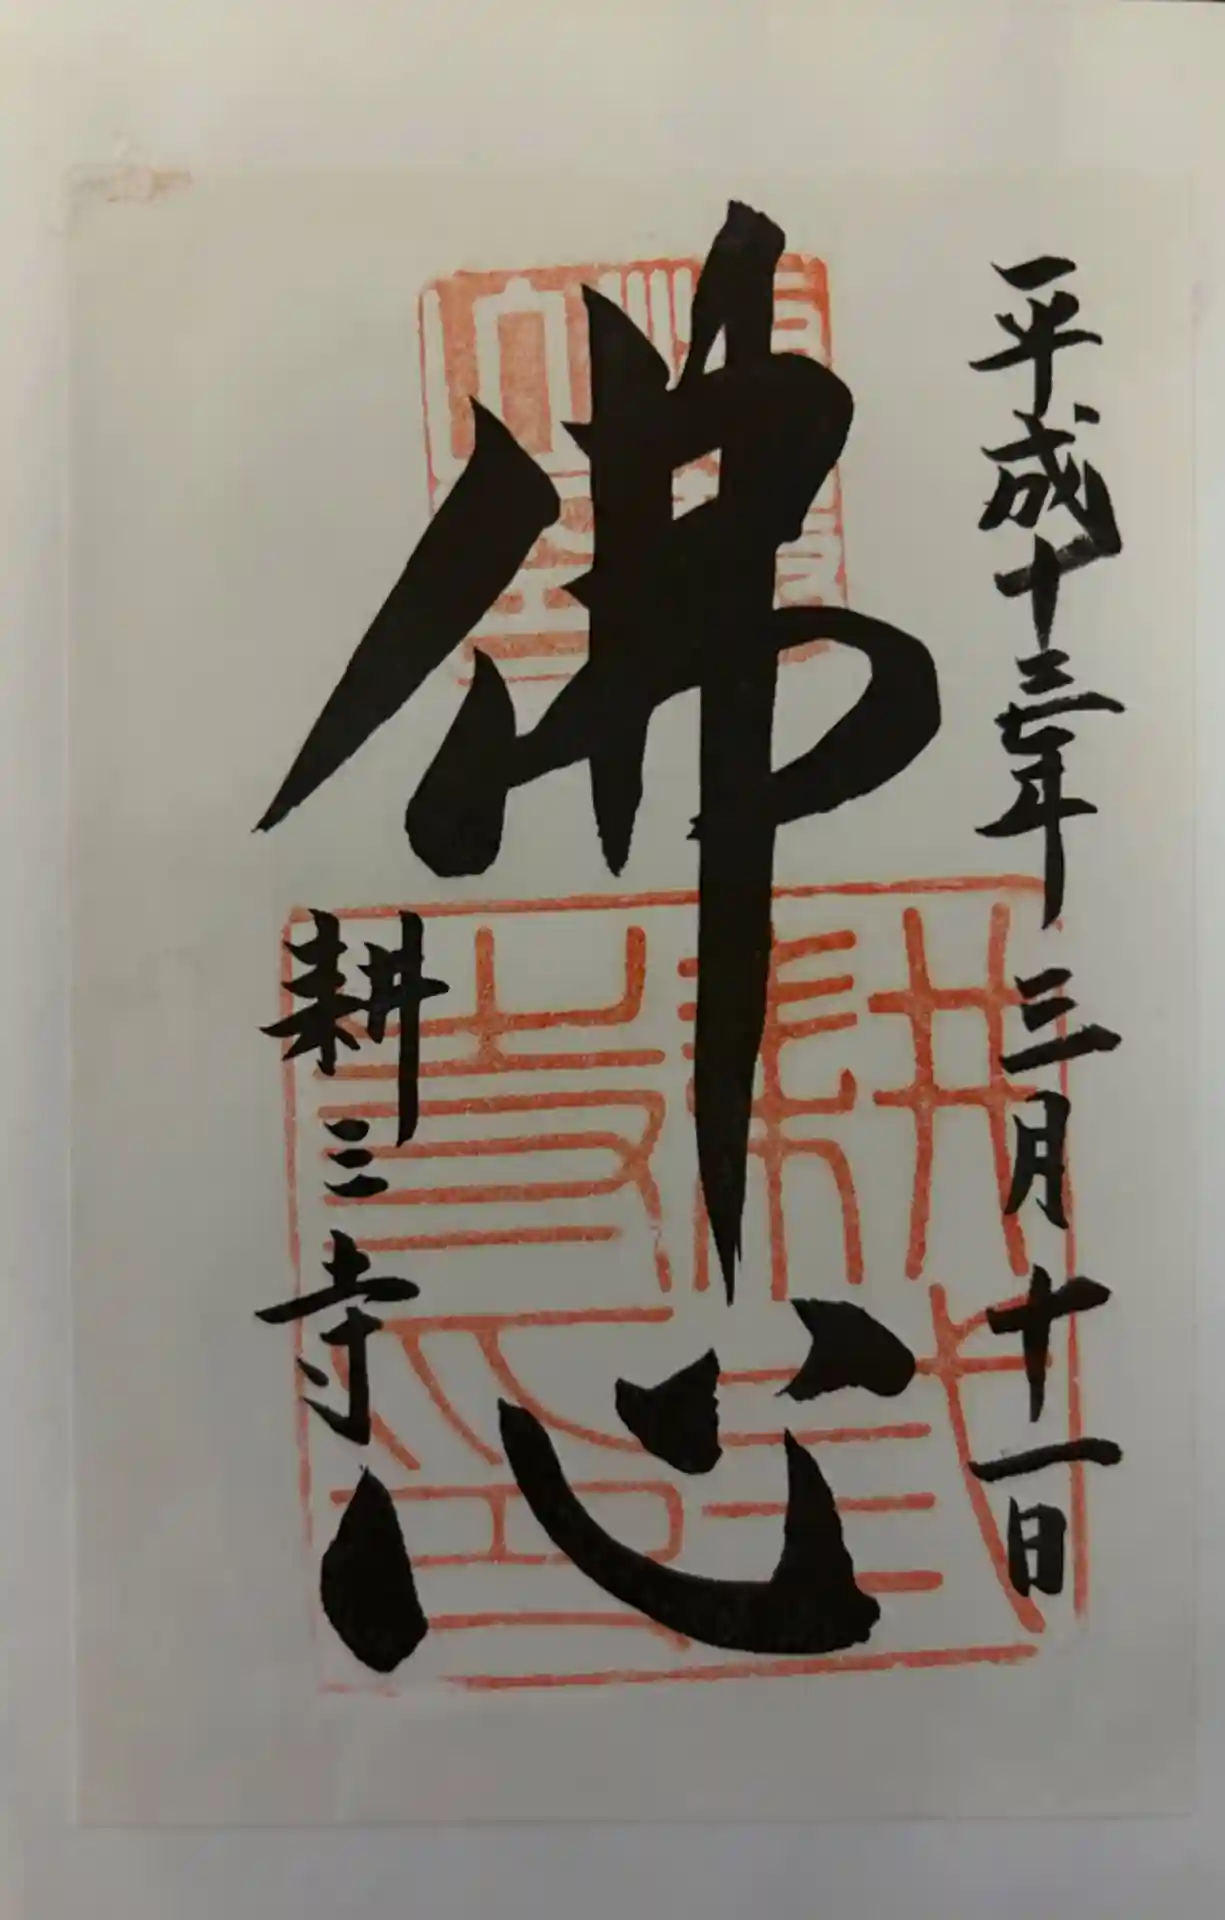 平成十三年三月十一日
佛心
耕三寺
耕弎寺印